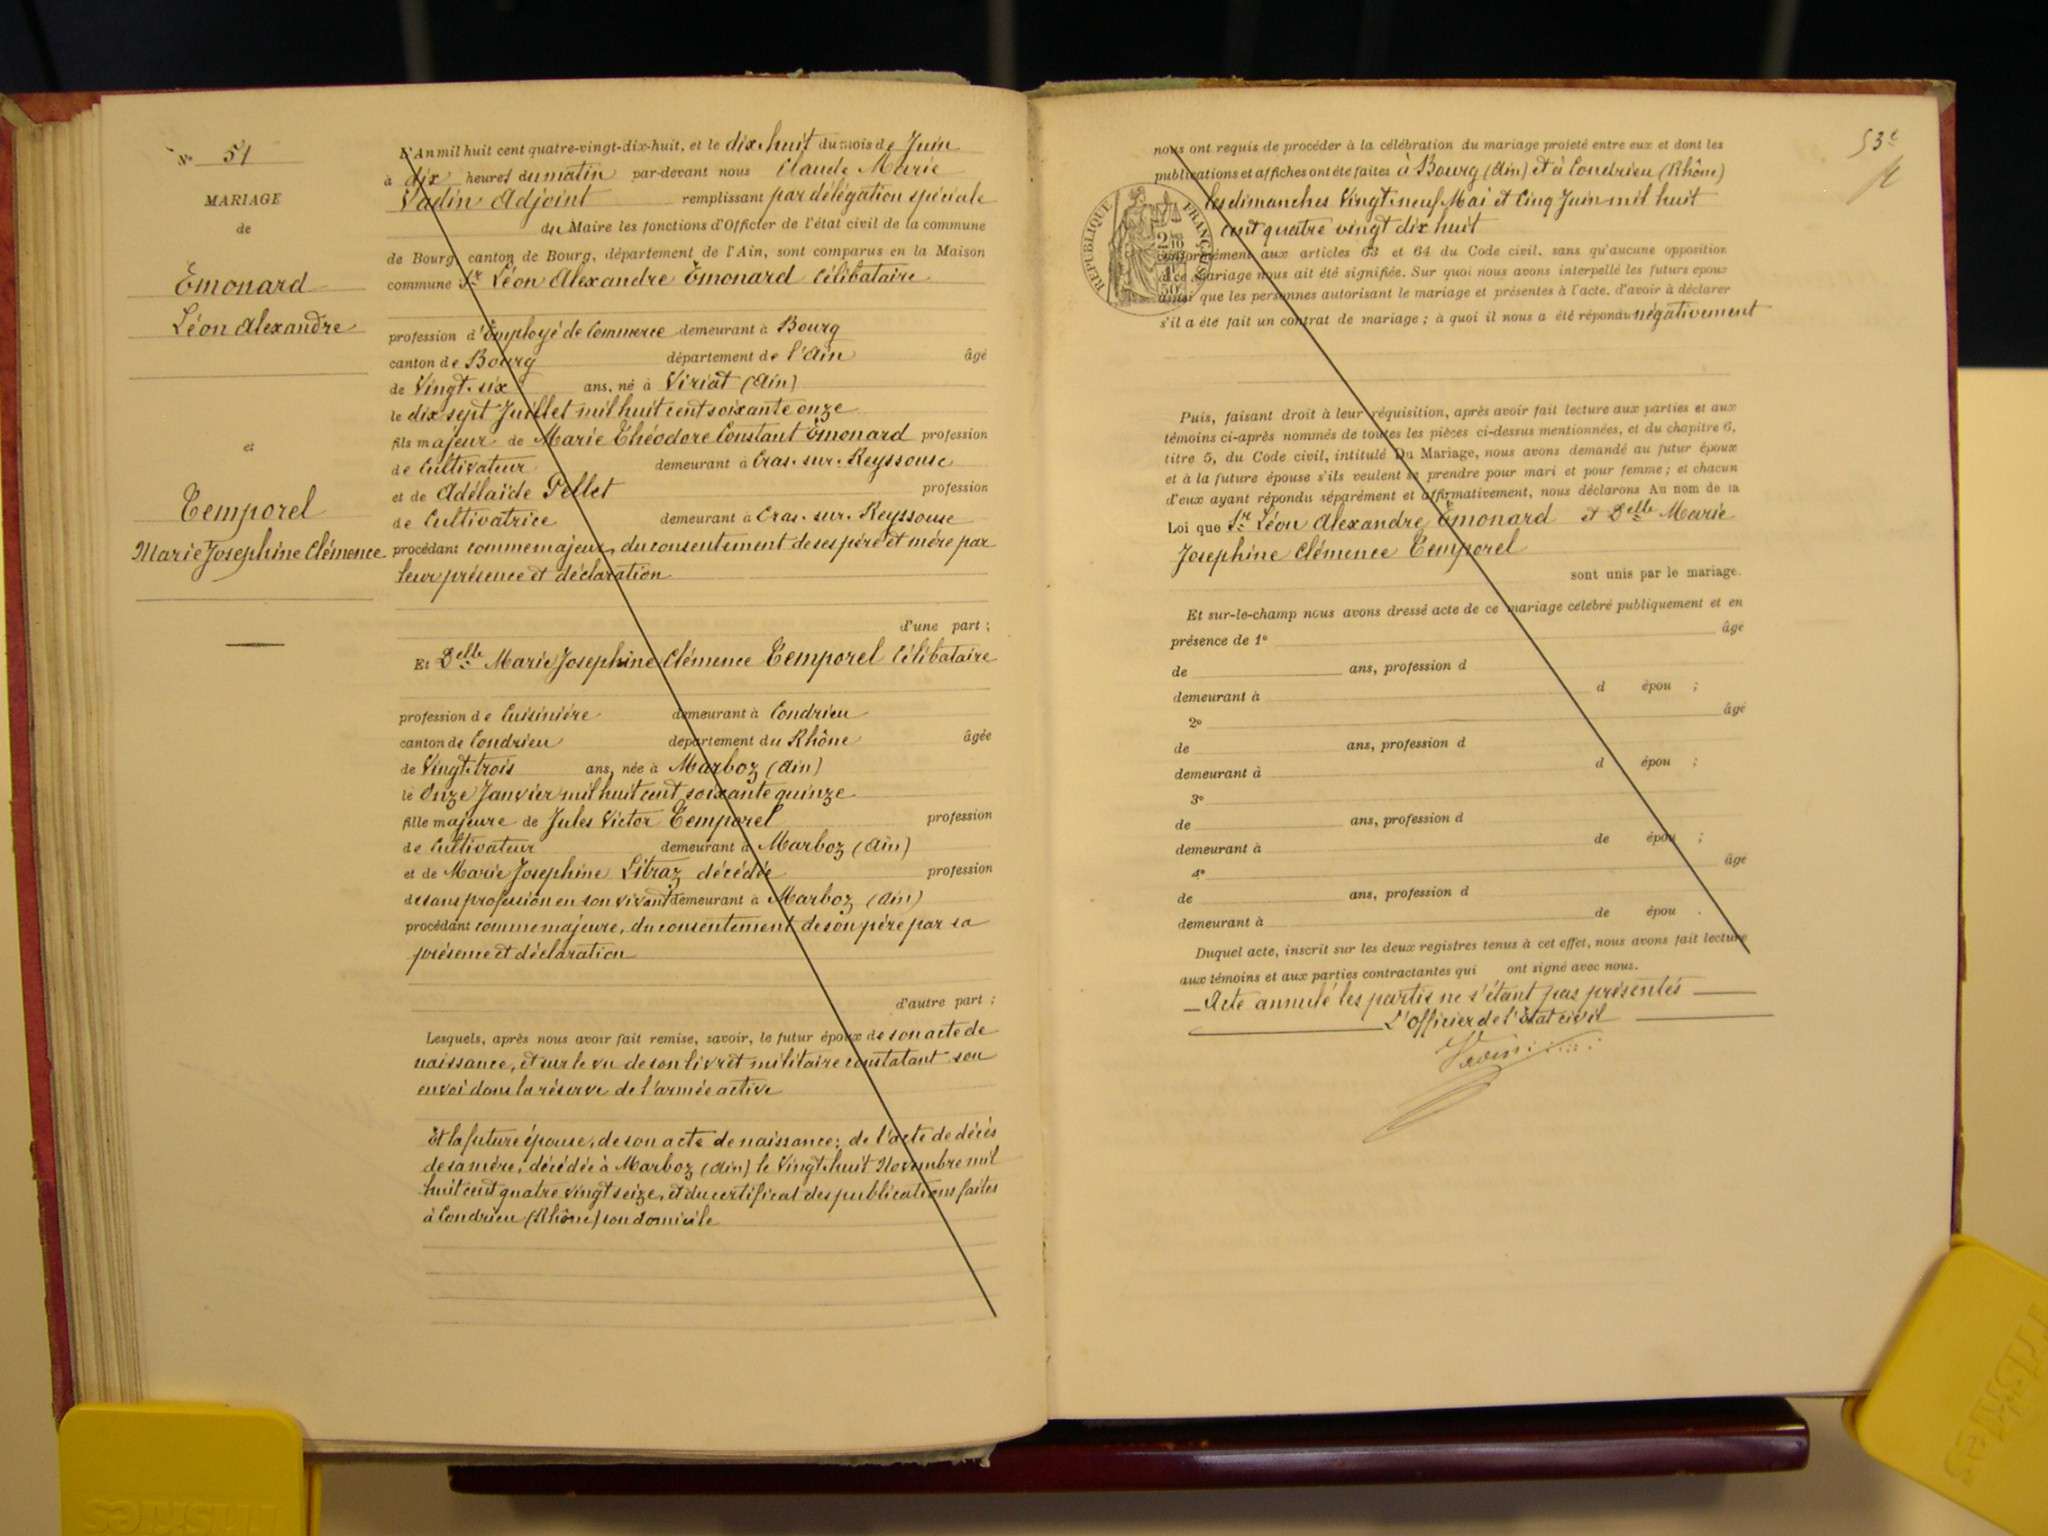 N° 51
MARIAGE
de
Emonard
Léon Alexandre
et
Temporel
Marie Josephine Clémence
L'An mil huit cent quatre-vingt-dix-huit, et le dix-huit du mois de Juin
à dix heures du matin par-devant nous Claude Marie
Vadin Adjoint remplissant par délégation spéciale
du Maire les fonctions d'Officier de l'état civil de la commune
de Bourg, canton de Bourg, département de l'Ain, sont comparus en la Maison
commune Sr Léon Alexandre Emonard Célibataire
profession d'Employé de Commerce demeurant à Bourg
canton de Bourg département de l'Ain âgé
de Vingt-six ans, né à Viriat (Ain)
le dix sept Juillet mil huit cent soixante onze
fils majeur de Marie Théodore Constant Emonard profession
de Cultivateur demeurant à Cras-sur-Reyssouse
et de Adélaïde Pellet profession
de Cultivatrice demeurant à Cras-sur-Reyssouse
procédant comme majeur, du consentement de ses père et mère par
leur présence et déclaration
d'une part ;
Et Delle Marie Josephine Clémence Temporel Célibataire
profession de Cuisinière demeurant à Condrieu
canton de Condrieu département du Rhône âgée
de Vingt-trois ans, née à Marboz (Ain)
le Onze Janvier mil huit cent soixante quinze
fille majeure de Jules Victor Temporel profession
de Cultivateur demeurant à Marboz (Ain)
et de Marie Josephine Litraz décédée profession
de sans profession en son vivant demeurant à Marboz (Ain)
procédant comme majeure, du consentement de son père par sa
présence et déclaration
d'autre part ;
Lesquels, après nous avoir fait remise, savoir, le futur époux de son acte de
naissance, et sur le vu de son livret militaire constatant son
envoi dans la réserve de l'armée active
Et la future épouse, de son acte de naissance; de l'acte de décès
de sa mère, décédée à Marboz (Ain) le Vingt-huit Novembre mil
huit cent quatre vingt seize, et du certificat des publications faites
à Condrieu (Rhône) son domicile
53e
nous ont requis de procéder à la célébration du mariage projeté entre eux et dont les
publications et affiches ont été faites à Bourg (Ain) et à Condrieu (Rhône)
les dimanches Vingt-neuf Mai et Cinq Juin mil huit
cent quatre vingt dix huit
RÉPUBLIQUE FRANÇAISE
conformément aux articles 63 et 64 du Code civil, sans qu'aucune opposition
à ce mariage nous ait été signifiée. Sur quoi nous avons interpellé les futurs époux
ainsi que les personnes autorisant le mariage et présentes à l'acte, d'avoir à déclarer
s'il a été fait un contrat de mariage ; à quoi il nous a été répondu négativement
Puis, faisant droit à leur réquisition, après avoir fait lecture aux parties et aux
témoins ci-après nommés de toutes les pièces ci-dessus mentionnées, et du chapitre 6,
titre 5, du Code civil, intitulé Du Mariage, nous avons demandé au futur époux
et à la future épouse s'ils veulent se prendre pour mari et pour femme ; et chacun
d'eux ayant répondu séparément et affirmativement, nous déclarons Au nom de la
Loi que Sr Léon Alexandre Emonard et Delle Marie
Josephine Clémence Temporel
sont unis par le mariage.
Et sur-le-champ nous avons dressé acte de ce mariage célébré publiquement et en
présence de 1° âgé
de ans, profession d
demeurant à d épou ;
2° âgé
de ans, profession d
demeurant à d épou ;
3°
de ans, profession d
demeurant à de épou ;
4° âgé
de ans, profession d
demeurant à de épou .
Duquel acte, inscrit sur les deux registres tenus à cet effet, nous avons fait lecture
aux témoins et aux parties contractantes qui ont signé avec nous.
Acte annulé les partis ne s'étant pas présentés
L'officier de l'État civil
Vadin